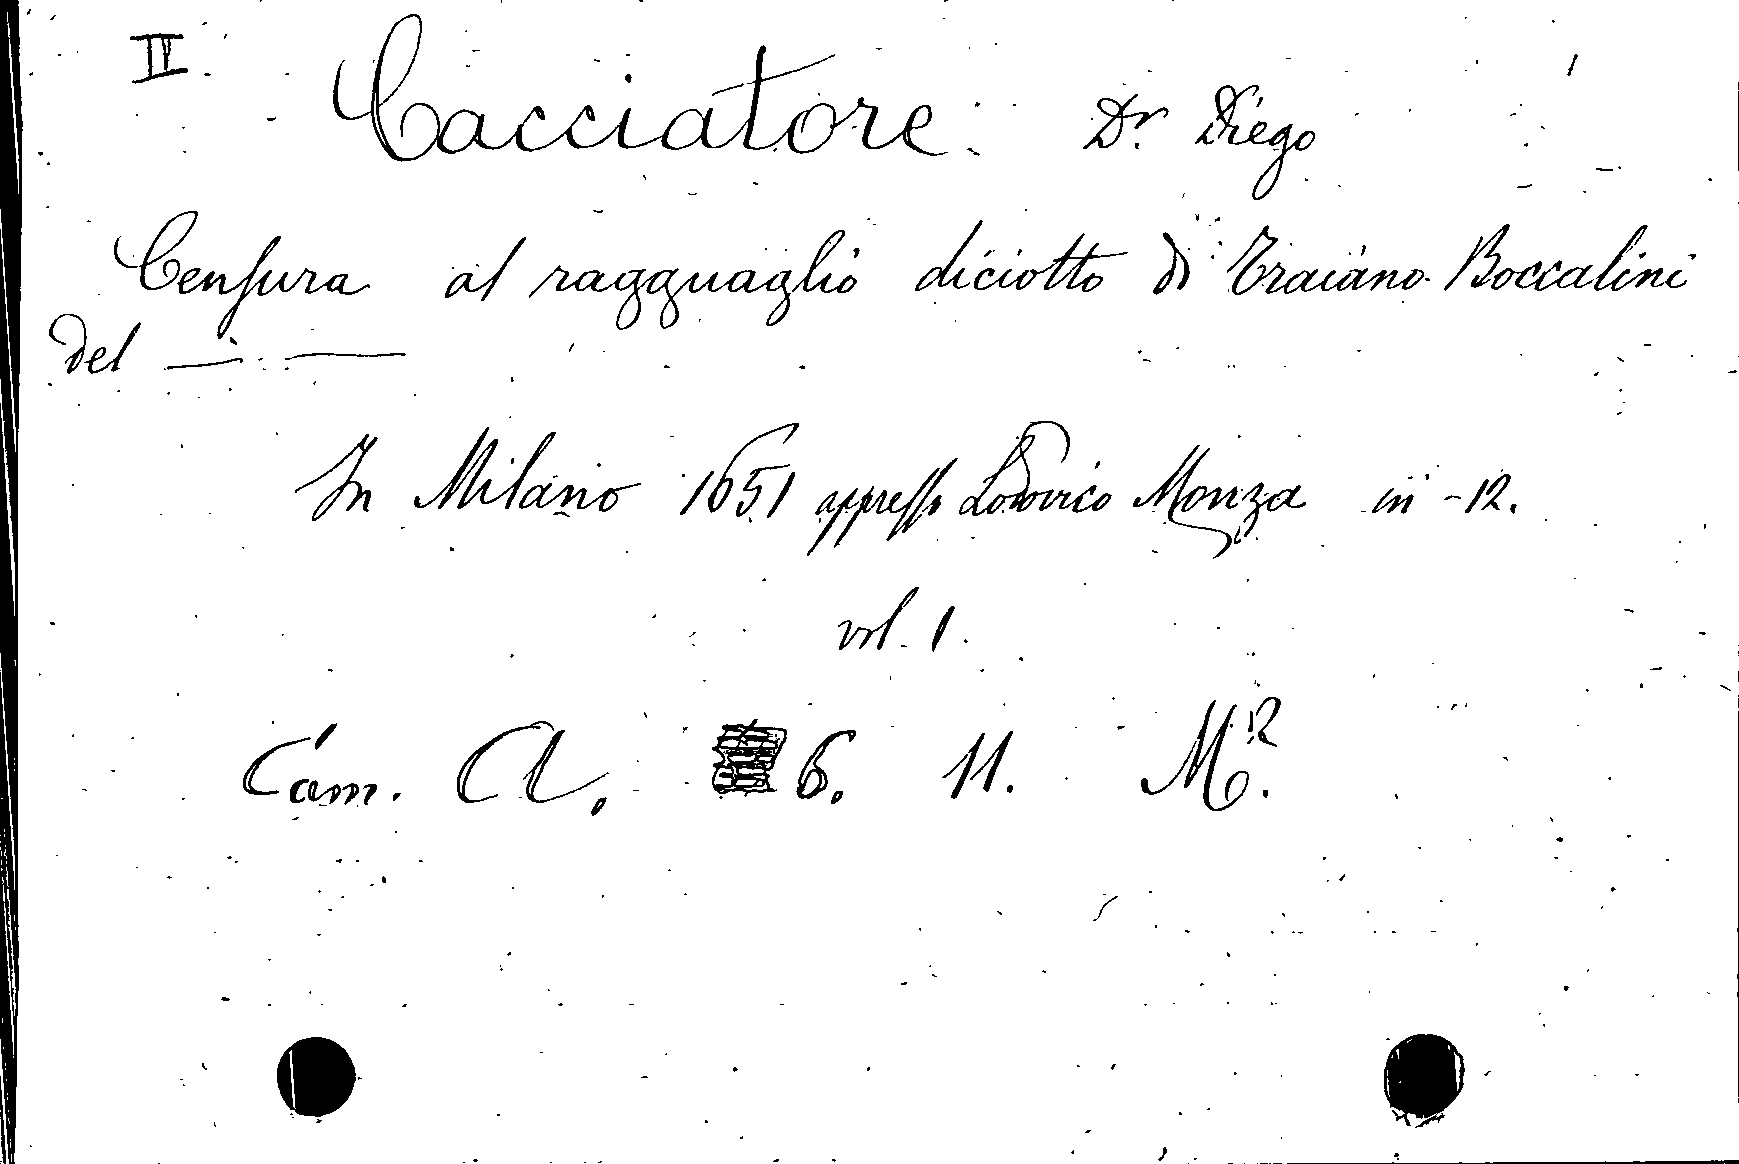 II. Cacciatore Dr. Diego
Censura al ragguaglio diciotto di Traiano Boccalini
del — —
In Milano 1651 appresso Lodovico Monza in-12.
vol. 1.
Cam. A. 6. 11.